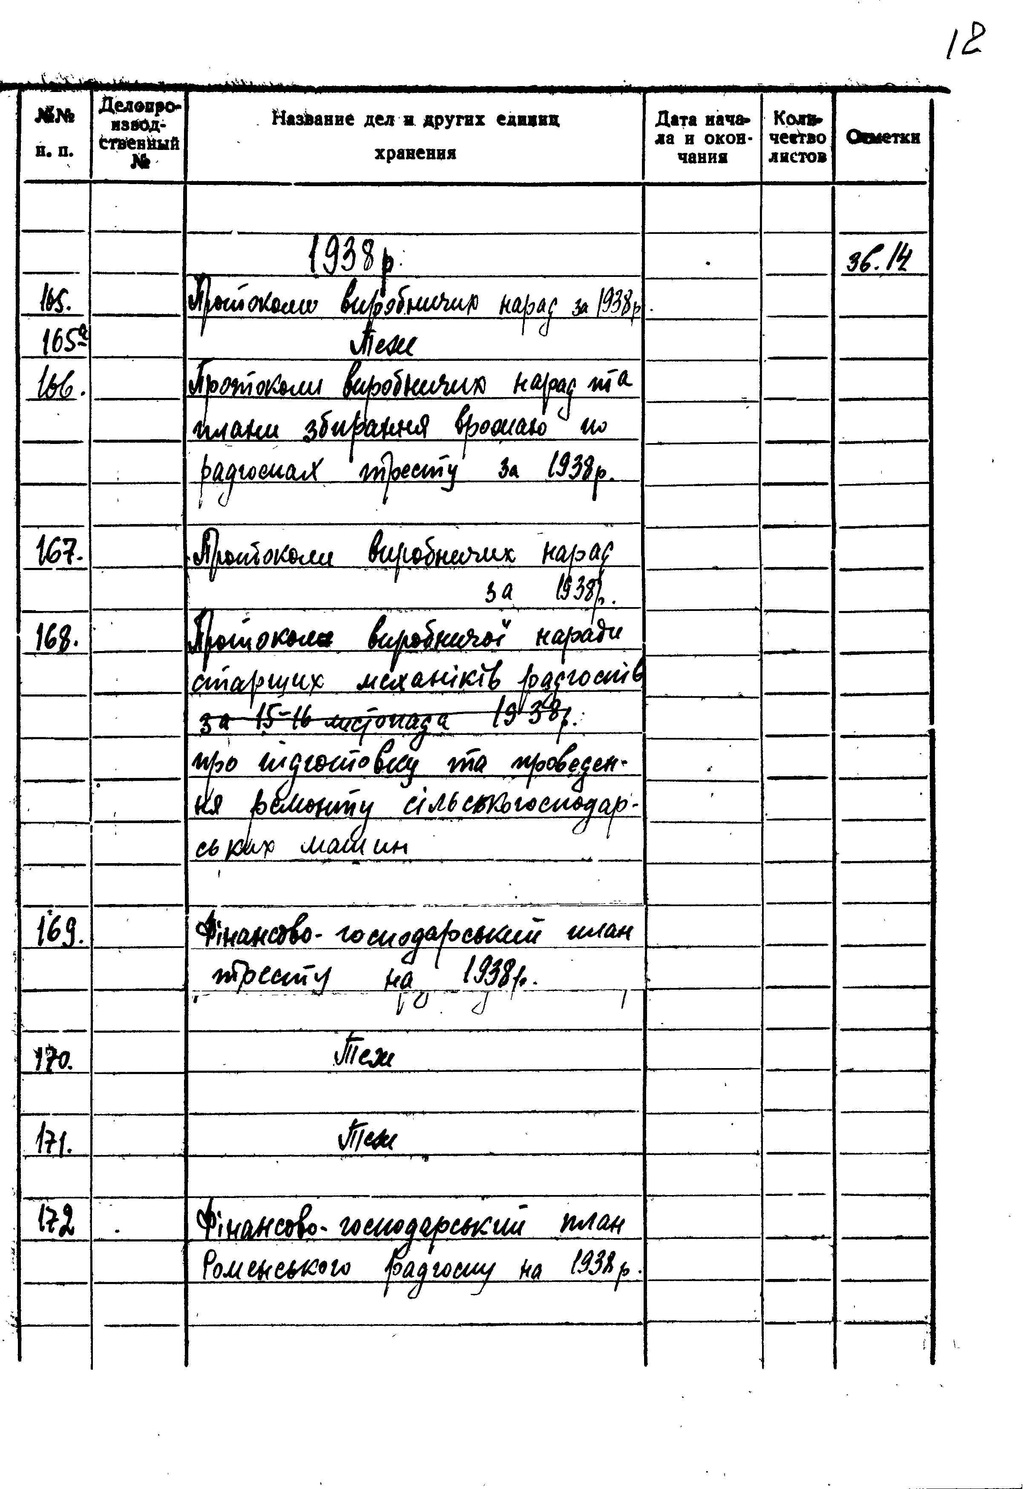 18
№№ п. п.
Делопроизвод-ственный №
Название дел и других единиц хранения
Дата начала и окончания
Количество листов
Отметки
1938 р.
зб. 14
165. Протоколи виробничих нарад за 1938р.
165а Теж
166. Протоколи виробничих нарад та
плани збирання врожаю по
радгоспах тресту за 1938р.
167. Протоколи виробничих нарад
за 1938р.
168. Протокол виробничої наради
старших механіків радгоспів
за 15-16 листопада 1938р.
про підготовку та проведен-
ня ремонту сільськогосподар-
ських машин
169. Фінансово-господарський план
тресту на 1938р.
170. Теж
171. Теж
172 Фінансово-господарський план
Роменського радгоспу на 1938р.